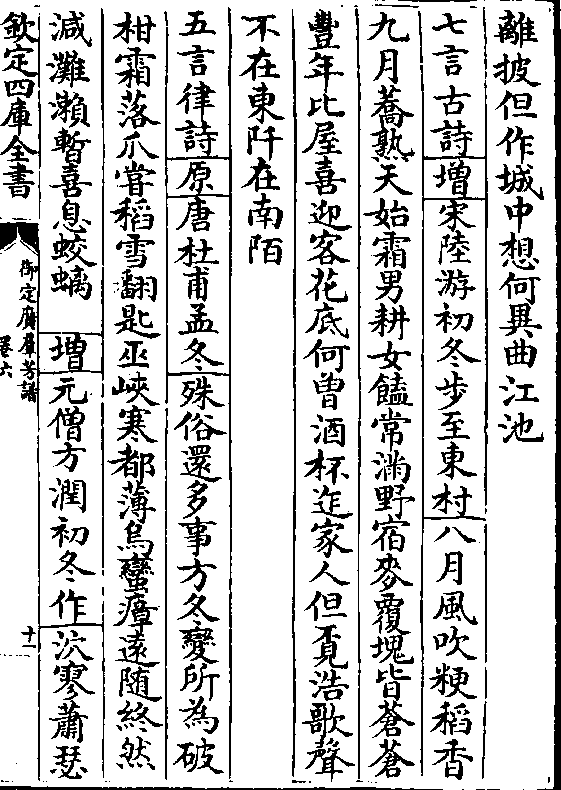 離披但作城中想何異曲江池
七言古詩增宋陸游初冬步至東村八月風吹粳稻香
九月蕎熟天始霜男耕女饁常滿野宿麥覆塊皆蒼蒼
豐年比屋喜迎客花底何曽酒杯迮家人但覓浩歌聲
不在東阡在南陌
五言律詩原唐杜甫孟冬殊俗還多事方冬變所為破
柑霜落爪嘗稻雪翻匙巫峽寒都薄烏蠻瘴遠随終然
減灘瀨暫喜息蛟螭 增元僧方潤初冬作泬寥蕭瑟
欽定四庫全書
御定廣羣芳譜
卷六
十一